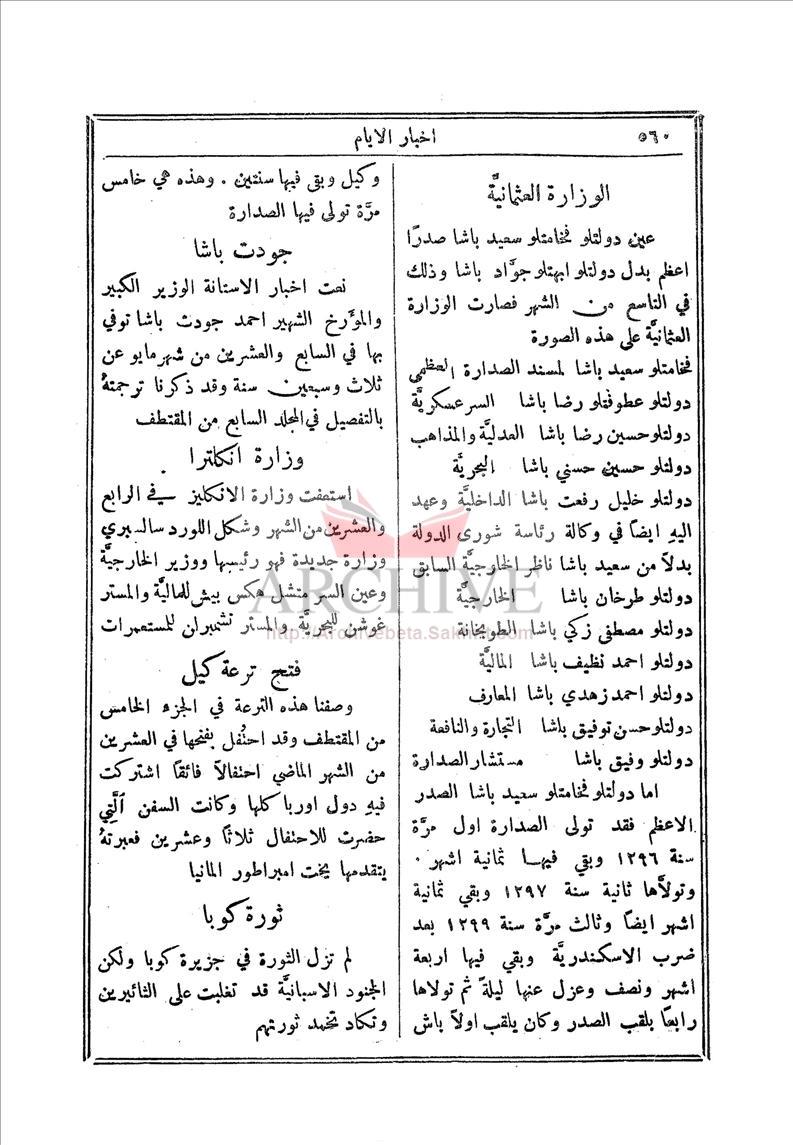 ٥٦٠
اخبار الايام
الوزارة العثمانيَّة
عين دولتلو فخامتلو سعيد باشا صدرًا
اعظم بدل دولتلو ابهتلو جوَّاد باشا وذلك
في التاسع من الشهر فصارت الوزارة
العثمانيَّة على هذه الصورة
فخامتلو سعيد باشا لمسند الصدارة العظمى
دولتلو عطوفتلو رضا باشا السرعسكريَّة
دولتلو حسين رضا باشا العدليَّة والمذاهب
دولتلو حسين حسني باشا البحريَّة
دولتلو خليل رفعت باشا الداخليَّة وعهد
اليهِ ايضًا في وكالة رئاسة شورى الدولة
بدلاً من سعيد باشا ناظر الخارجيَّة السابق
دولتلو طرخان باشا الخارجيَّة
دولتلو مصطفى زكي باشا الطوبخانة
دولتلو احمد نظيف باشا الماليَّة
دولتلو احمد زهدي باشا المعارف
دولتلو حسن توفيق باشا التجارة والنافعة
دولتلو وفيق باشا مستشار الصدارة
اما دولتلو فخامتلو سعيد باشا الصدر
الاعظم فقد تولى الصدارة اول مرَّة
سنة ١٢٩٦ وبقي فيها ثمانية اشهر .
وتولَّاها ثانية سنة ١٢٩٧ وبقي ثمانية
اشهر ايضًا وثالث مرَّة سنة ١٢٩٩ بعد
ضرب الاسكندريَّة وبقي فيها اربعة
اشهر ونصف وعزل عنها ليلةً ثم تولاها
رابعًا بلقب الصدر وكان يلقب اولاً باش
وكيل وبقي فيها سنتين . وهذه هي خامس
مرَّة تولى فيها الصدارة
جودت باشا
نعت اخبار الاستانة الوزير الكبير
والمؤرخ الشهير احمد جودت باشا توفي
بها في السابع والعشرين من شهر مايو عن
ثلاث وسبعين سنة وقد ذكرنا ترجمتهُ
بالتفصيل في المجلد السابع من المقتطف
وزارة انكلترا
استعفت وزارة الانكليز في الرابع
والعشرين من الشهر وشكل اللورد سالسبري
وزارة جديدة فهو رئيسها ووزير الخارجيَّة
وعين السر متشل هكس بيش للماليَّة والمستر
غوشن للبحريَّة والمستر تشمبران للمستعمرات
فتح ترعة كيل
وصفنا هذه الترعة في الجزء الخامس
من المقتطف وقد احتُفل بفتحها في العشرين
من الشهر الماضي احتفالاً فائقًا اشتركت
فيهِ دول اوربا كلها وكانت السفن الَّتي
حضرت للاحتفال ثلاثًا وعشرين فعبرتهُ
يتقدمها يخت امبراطور المانيا
ثورة كوبا
لم تزل الثورة في جزيرة كوبا ولكن
الجنود الاسبانيَّة قد تغلبت على الثائرين
وتكاد تخمد ثورتهم
ARCHIVE
http://Archivebeta.Sakhrit.com